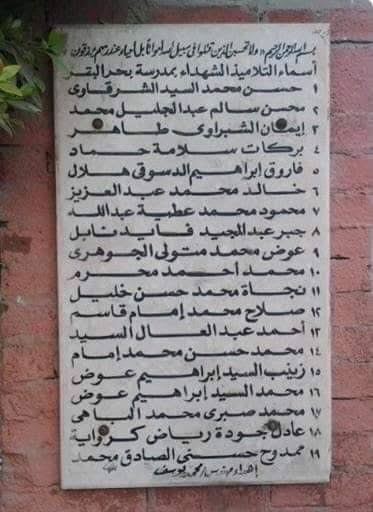 بسم الله الرحمن الرحيم "ولا تحسبن الذين قتلوا في سبيل الله أمواتا بل أحياء عند ربهم يرزقون"
أسماء التلاميذ الشهداء بمدرسة بحر البقر
١ حسن محمد السيد الشرقاوى
٢ محسن سالم عبد الجليل محمد
٣ إيمان الشبراوى طاهر
٤ بركات سلامة حماد
٥ فاروق ابراهيم الدسوقى هلال
٦ خالد محمد عبد العزيز
٧ محمود محمد عطية عبد الله
٨ جبر عبد المجيد فايد نايل
٩ عوض محمد متولى الجوهرى
١٠ محمد أحمد محرم
١١ نجاة محمد حسن خليل
١٢ صلاح محمد إمام قاسم
١٣ أحمد عبد العال السيد
١٤ محمد حسن محمد إمام
١٥ زينب السيد إبراهيم عوض
١٦ محمد السيد إبراهيم عوض
١٧ محمد صبرى محمد الباهى
١٨ عادل جودة رياض كراوية
١٩ ممدوح حسنى الصادق محمد
إهداء محمد يوسف